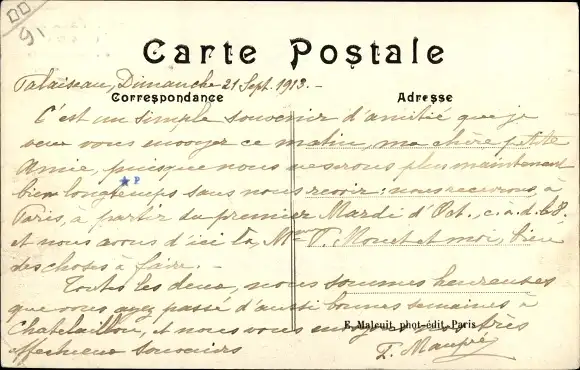 91
Carte Postale
Palaiseau, Dimanche 21 Sept. 1913. -
Correspondance
Adresse
C'est un simple souvenir d'amitié que je
veux vous envoyer ce matin, ma chère petite
Amie, puisque nous ne serons plus maintenant
bien longtemps sans nous revoir : nous recevrons, à
Paris, à partir du premier Mardi d'Oct., c. à. d. le 7.
et nous avons d'ici là, Mme T. Monet et moi, bien
des choses à faire. -
Toutes les deux, nous sommes heureuses
que vous ayez passé d'aussi bonnes semaines à
Chatelaillon, et nous vous envoyons nos très
affectueux souvenirs
E. Maleuit phot-édit. Paris
P